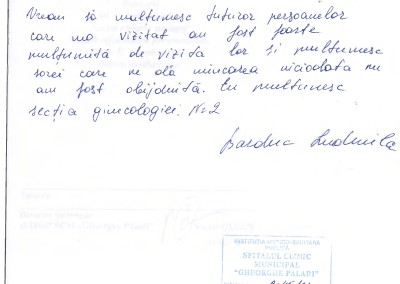 Vreau să multumesc tuturor persoanelor
care mo vizitat au fost foarte
multumită de vizita lor și multumesc
sorei care ne dă mincarea niciodata nu
am fost obijduită. Eu multumesc
secția ginicologiei. N=2
Ludmila
INSTITUȚIA MEDICO-SANITARĂ
PUBLICĂ
SPITALUL CLINIC
MUNICIPAL
"GHEORGHE PALADI"